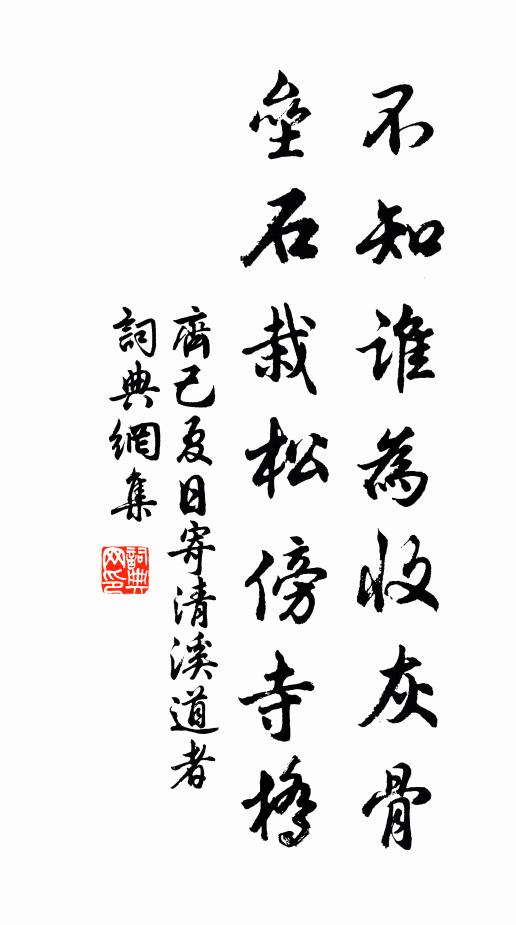 不知誰為收灰骨
壘石栽松傍寺橋
齊己夏日寄清溪道者
詞典網集
詞典網印